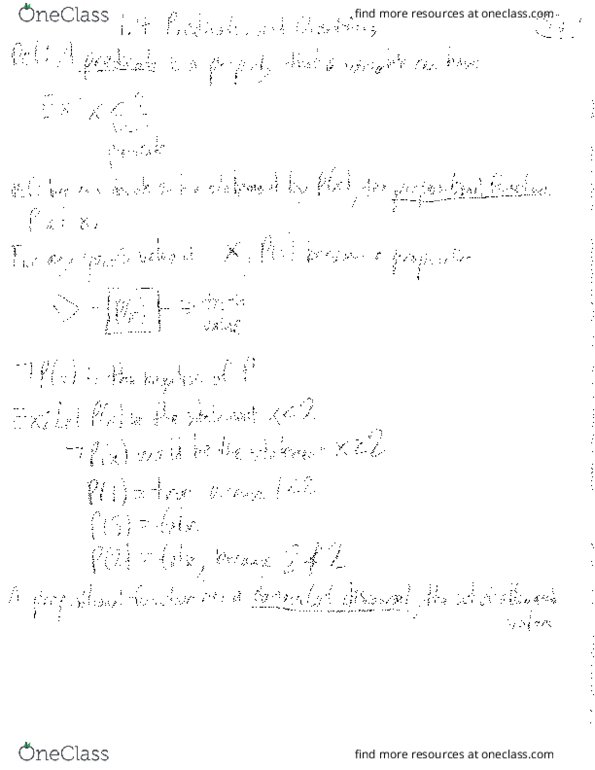 OneClass
find more resources at oneclass.com
1.4 Predicates and Quantifiers
Def: A predicate is a property that a variable can have
Ex: x <
predicate
P(x), the propositional function
P at x.
For any specific value of x, P(x) becomes a proposition
P(x) → truth
value
¬P(x) is the negation of P
Ex: Let P(x) be the statement x<2
¬P(x) would be the statement x≥2
P(1) = true because 1<2
P(5) = false
P(2) = false, because 2≮2
A propositional function has a domain of discourse, the set of allowed
values
OneClass
find more resources at oneclass.com